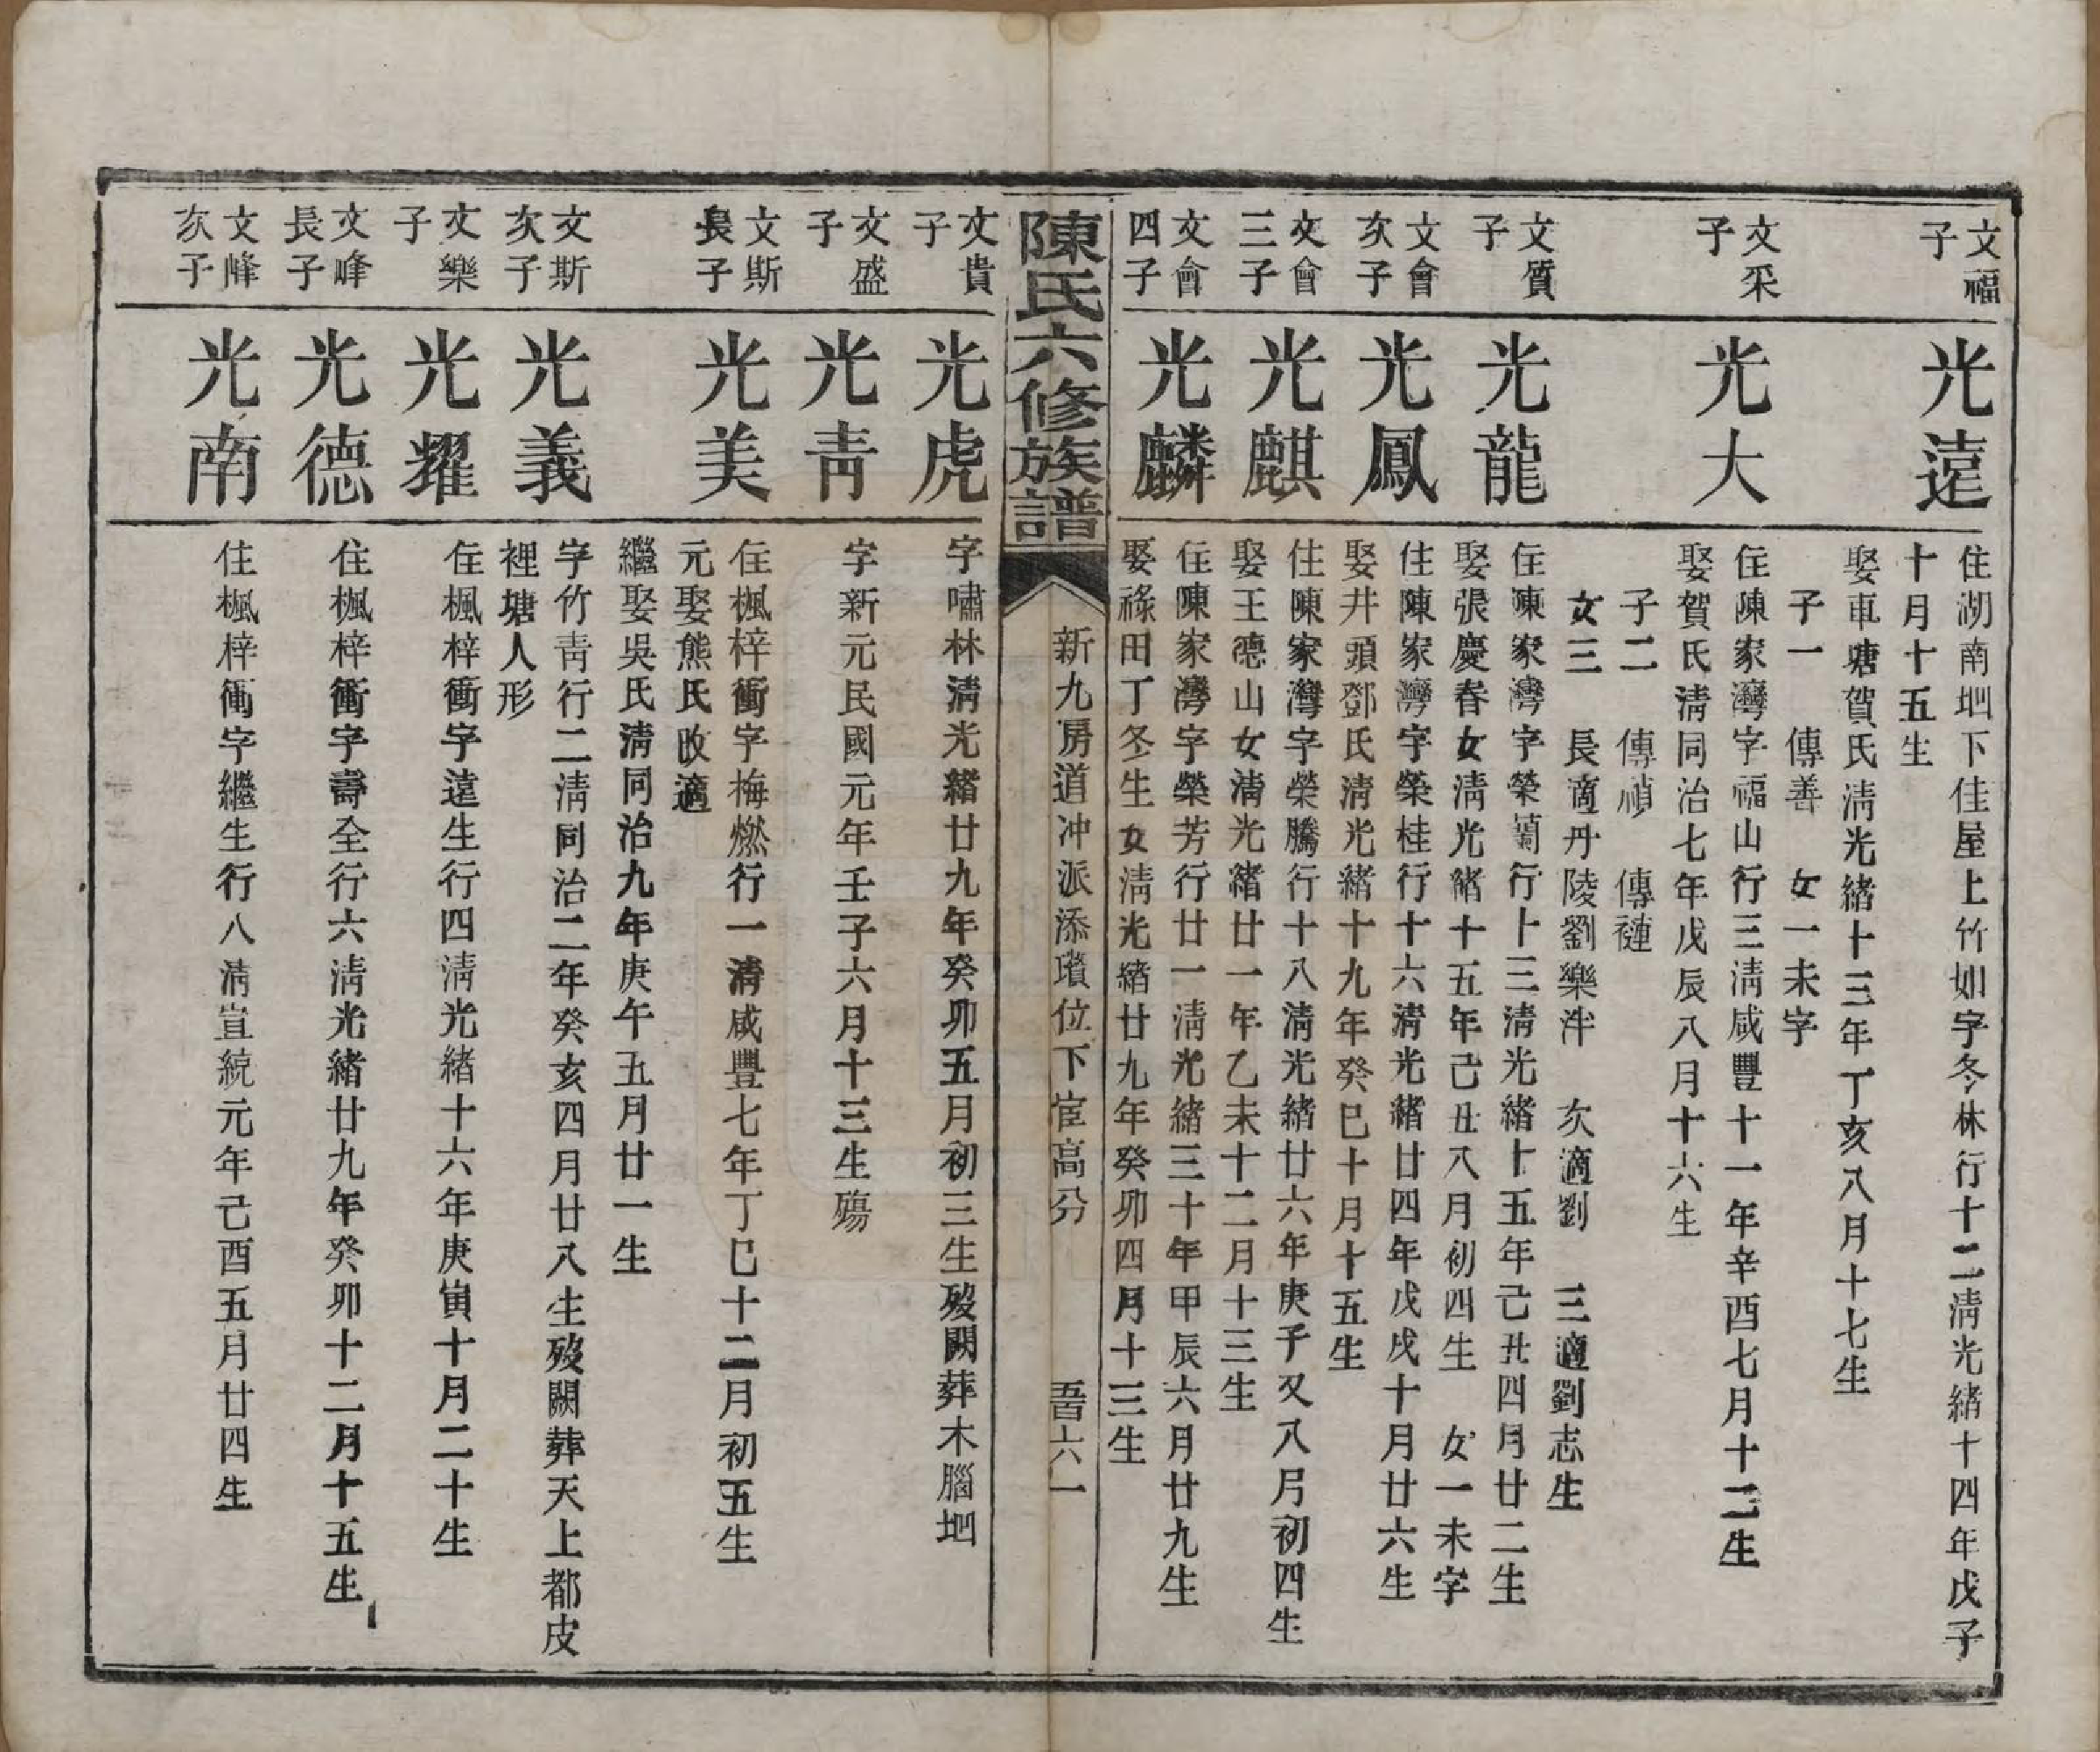 文福子
光遠
住湖南坥下佳屋上竹如字冬林行十二清光緒十四年戊子
十月十五生
娶車塘賀氏清光緒十三年丁亥八月十七生
子一　傳善　女一未字
文采子
光大
住陳家灣字福山行三清咸豐十一年辛酉七月十二生
娶賀氏清同治七年戊辰八月十六生
子二　傳禎　傳褳
女三　長適丹陵劉樂泮　次適劉　三適劉志生
文質子
光龍
住陳家灣字榮蘭行十三清光緒十五年己丑四月廿二生
娶張慶春女清光緒十五年己丑八月初四生　女一未字
文會次子
光鳳
住陳家灣字榮桂行十六清光緒廿四年戊戌十月廿六生
娶井頭鄧氏清光緒十九年癸巳十月十五生
文會三子
光麒
住陳家灣字榮騰行十八清光緒廿六年庚子又八月初四生
娶王德山女清光緒廿一年乙未十二月十三生
文會四子
光麟
住陳家灣字榮芳行廿一清光緒三十年甲辰六月廿九生
娶祿田丁冬生女清光緒廿九年癸卯四月十三生
陳氏六修族譜
新九房道冲派添璸位下宦高分
五百六一
文貴子
光虎
字嘯林清光緒廿九年癸卯五月初三生歿闕葬木腦坥
文盛子
光靑
字新元民國元年壬子六月十三生殤
文斯長子
光美
住楓梓衝字梅燃行一清咸豐七年丁巳十二月初五生
元娶熊氏改適
繼娶吳氏清同治九年庚午五月廿一生
文斯次子
光義
字竹靑行二清同治二年癸亥四月廿八生歿闕葬天上都皮
裡塘人形
文樂子
光耀
住楓梓衝字遠生行四清光緒十六年庚寅十月二十生
文峰長子
光德
住楓梓衝字壽全行六清光緒廿九年癸卯十二月十五生
文峰次子
光南
住楓梓衝字繼生行八清宣統元年己酉五月廿四生